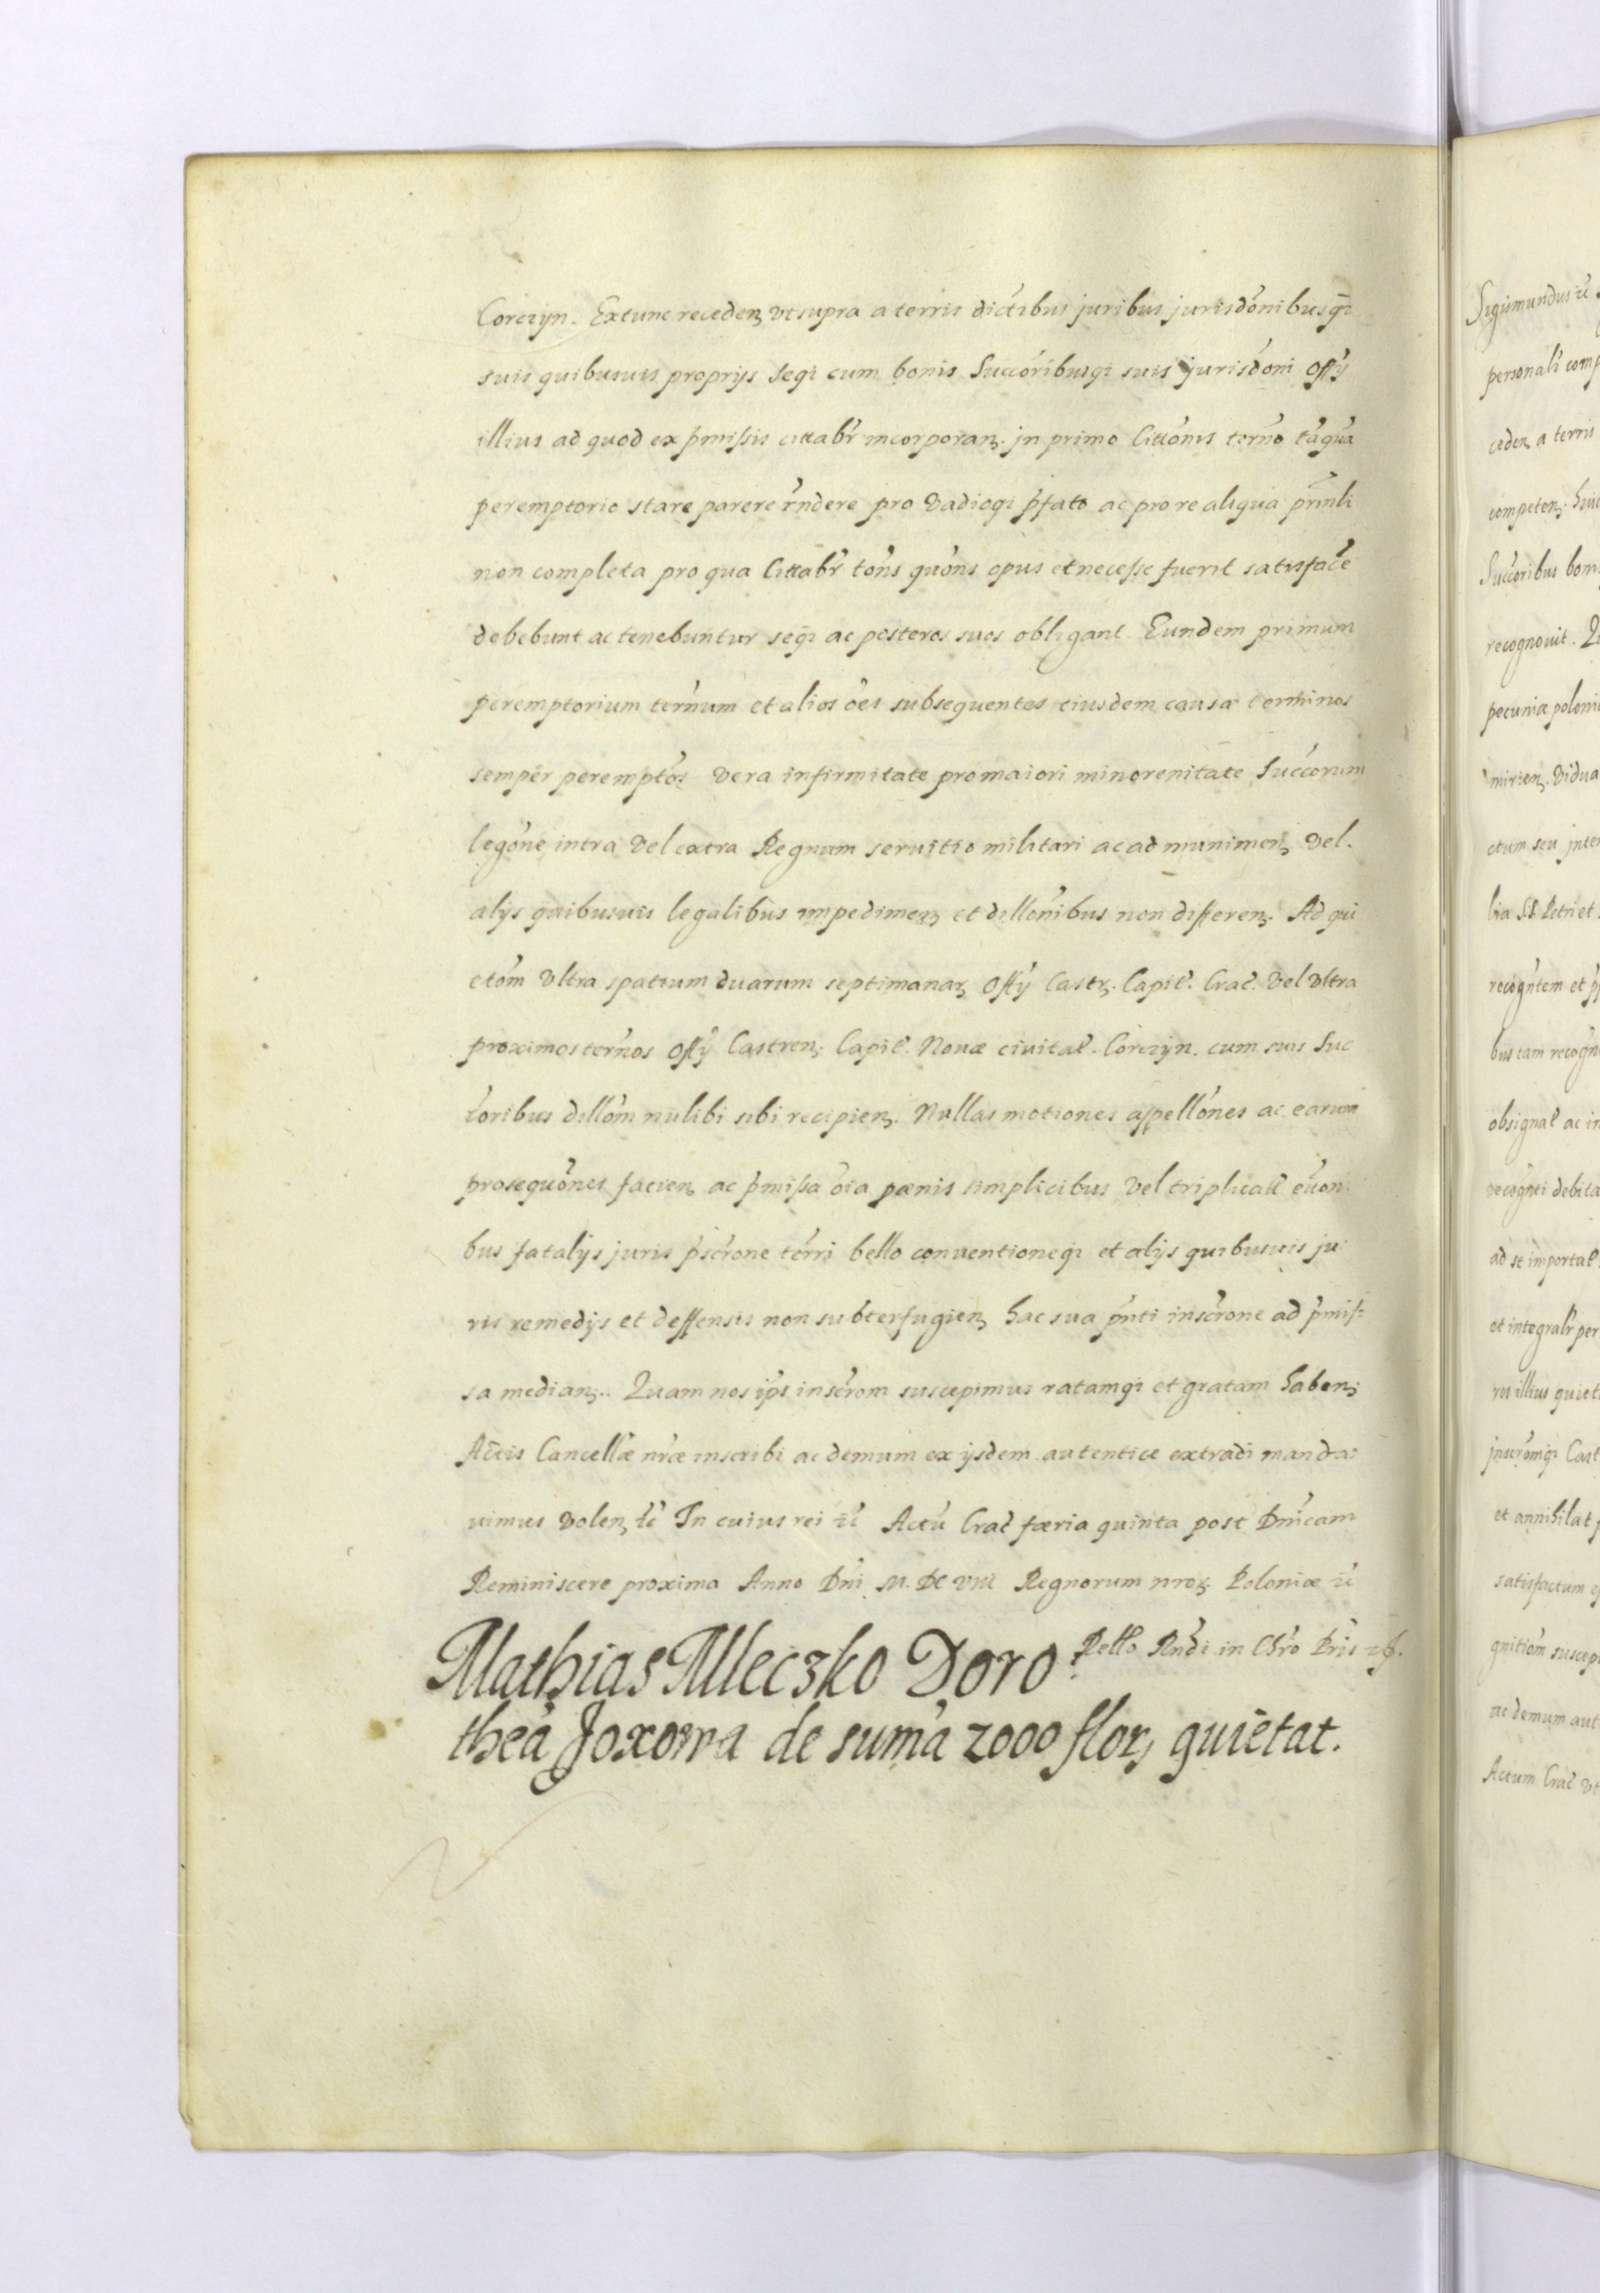 Corczyn. Extunc receden, vt supra a terris dictibus juribus jurisdonibusq3
suis quibusuis proprijs seq3 cum bonis succoribusq3 suis jurisdoni offy
illius ad quod ex pmissis cittabr incorporan. jn primo Cittonis termo taqua
peremptorio stare parere rndere pro vadioq3 pfato ac pro re aliqua pmnli
non completa pro qua Cittabr tons quons opus et necesse fuerit satisface
debebunt ac tenebuntur seq3 ac posteros suos obligant Eundem primum
peremptorium ternum et alios oes subsequentes eiusdem causæ terminos
semper peremptos vera infirmitate pro maiori minorenitate succorum
legone intra vel extra Regnum seruitio militari ac ad munimen, vel.
alijs quibusuis legalibus impedimen, et dillonibus non differen. Ad qui
etom vltra spatium duarum septimanar, offy Castr. Capit. Crac. vel vltra
proximos ternos offy Castren. Capit. Nouæ ciuitat. Corczyn. cum suis suc
coribus dillom nulibi sibi recipien. Nullas motiones appellones ac earum
prosequones facien, ac pmissa oia pænis simplicibus vel triplicatt euon
bus fatalijs juris pscrone terri bello conuentioneq3 et alijs quibusuis ju
ris remedijs et deffensis non subterfugien, hac sua pnti inscrone ad pmis:
sa median,. Quam nos ips inscrom suscepimus ratamq3 et gratam haben,
Actis Cancellæ nræ inscribi ac demum ex ijsdem autentice extradi manda:
uimus volen, etc In cuius rei etc Actu Crac færia quinta post Dnicam
Reminiscere proxima Anno Dni M.DC VIII Regnorum nror, Poloniæ etc
Rello Rndi in Chro Pris
Mathias Mleczko Doro:
thea Joxowa de suma 2000 flor, quietat.
Sigismundus etc
personali comp
ceden, a terris
competen, huic
Succoribus bom
recognouit. Qu
pecuniæ poloni
mirien, vidua
ctum seu jnter
lia SS Petri et
recogntem et p
bus eam recogn
obsignat ac in
recognti debita
ad se importat
et integralr per
ros illius quiet
jnscromq3 Cast
et annihilat p
satisfactum
gnitiom suscep
ac demum aut
Actum Crac vt